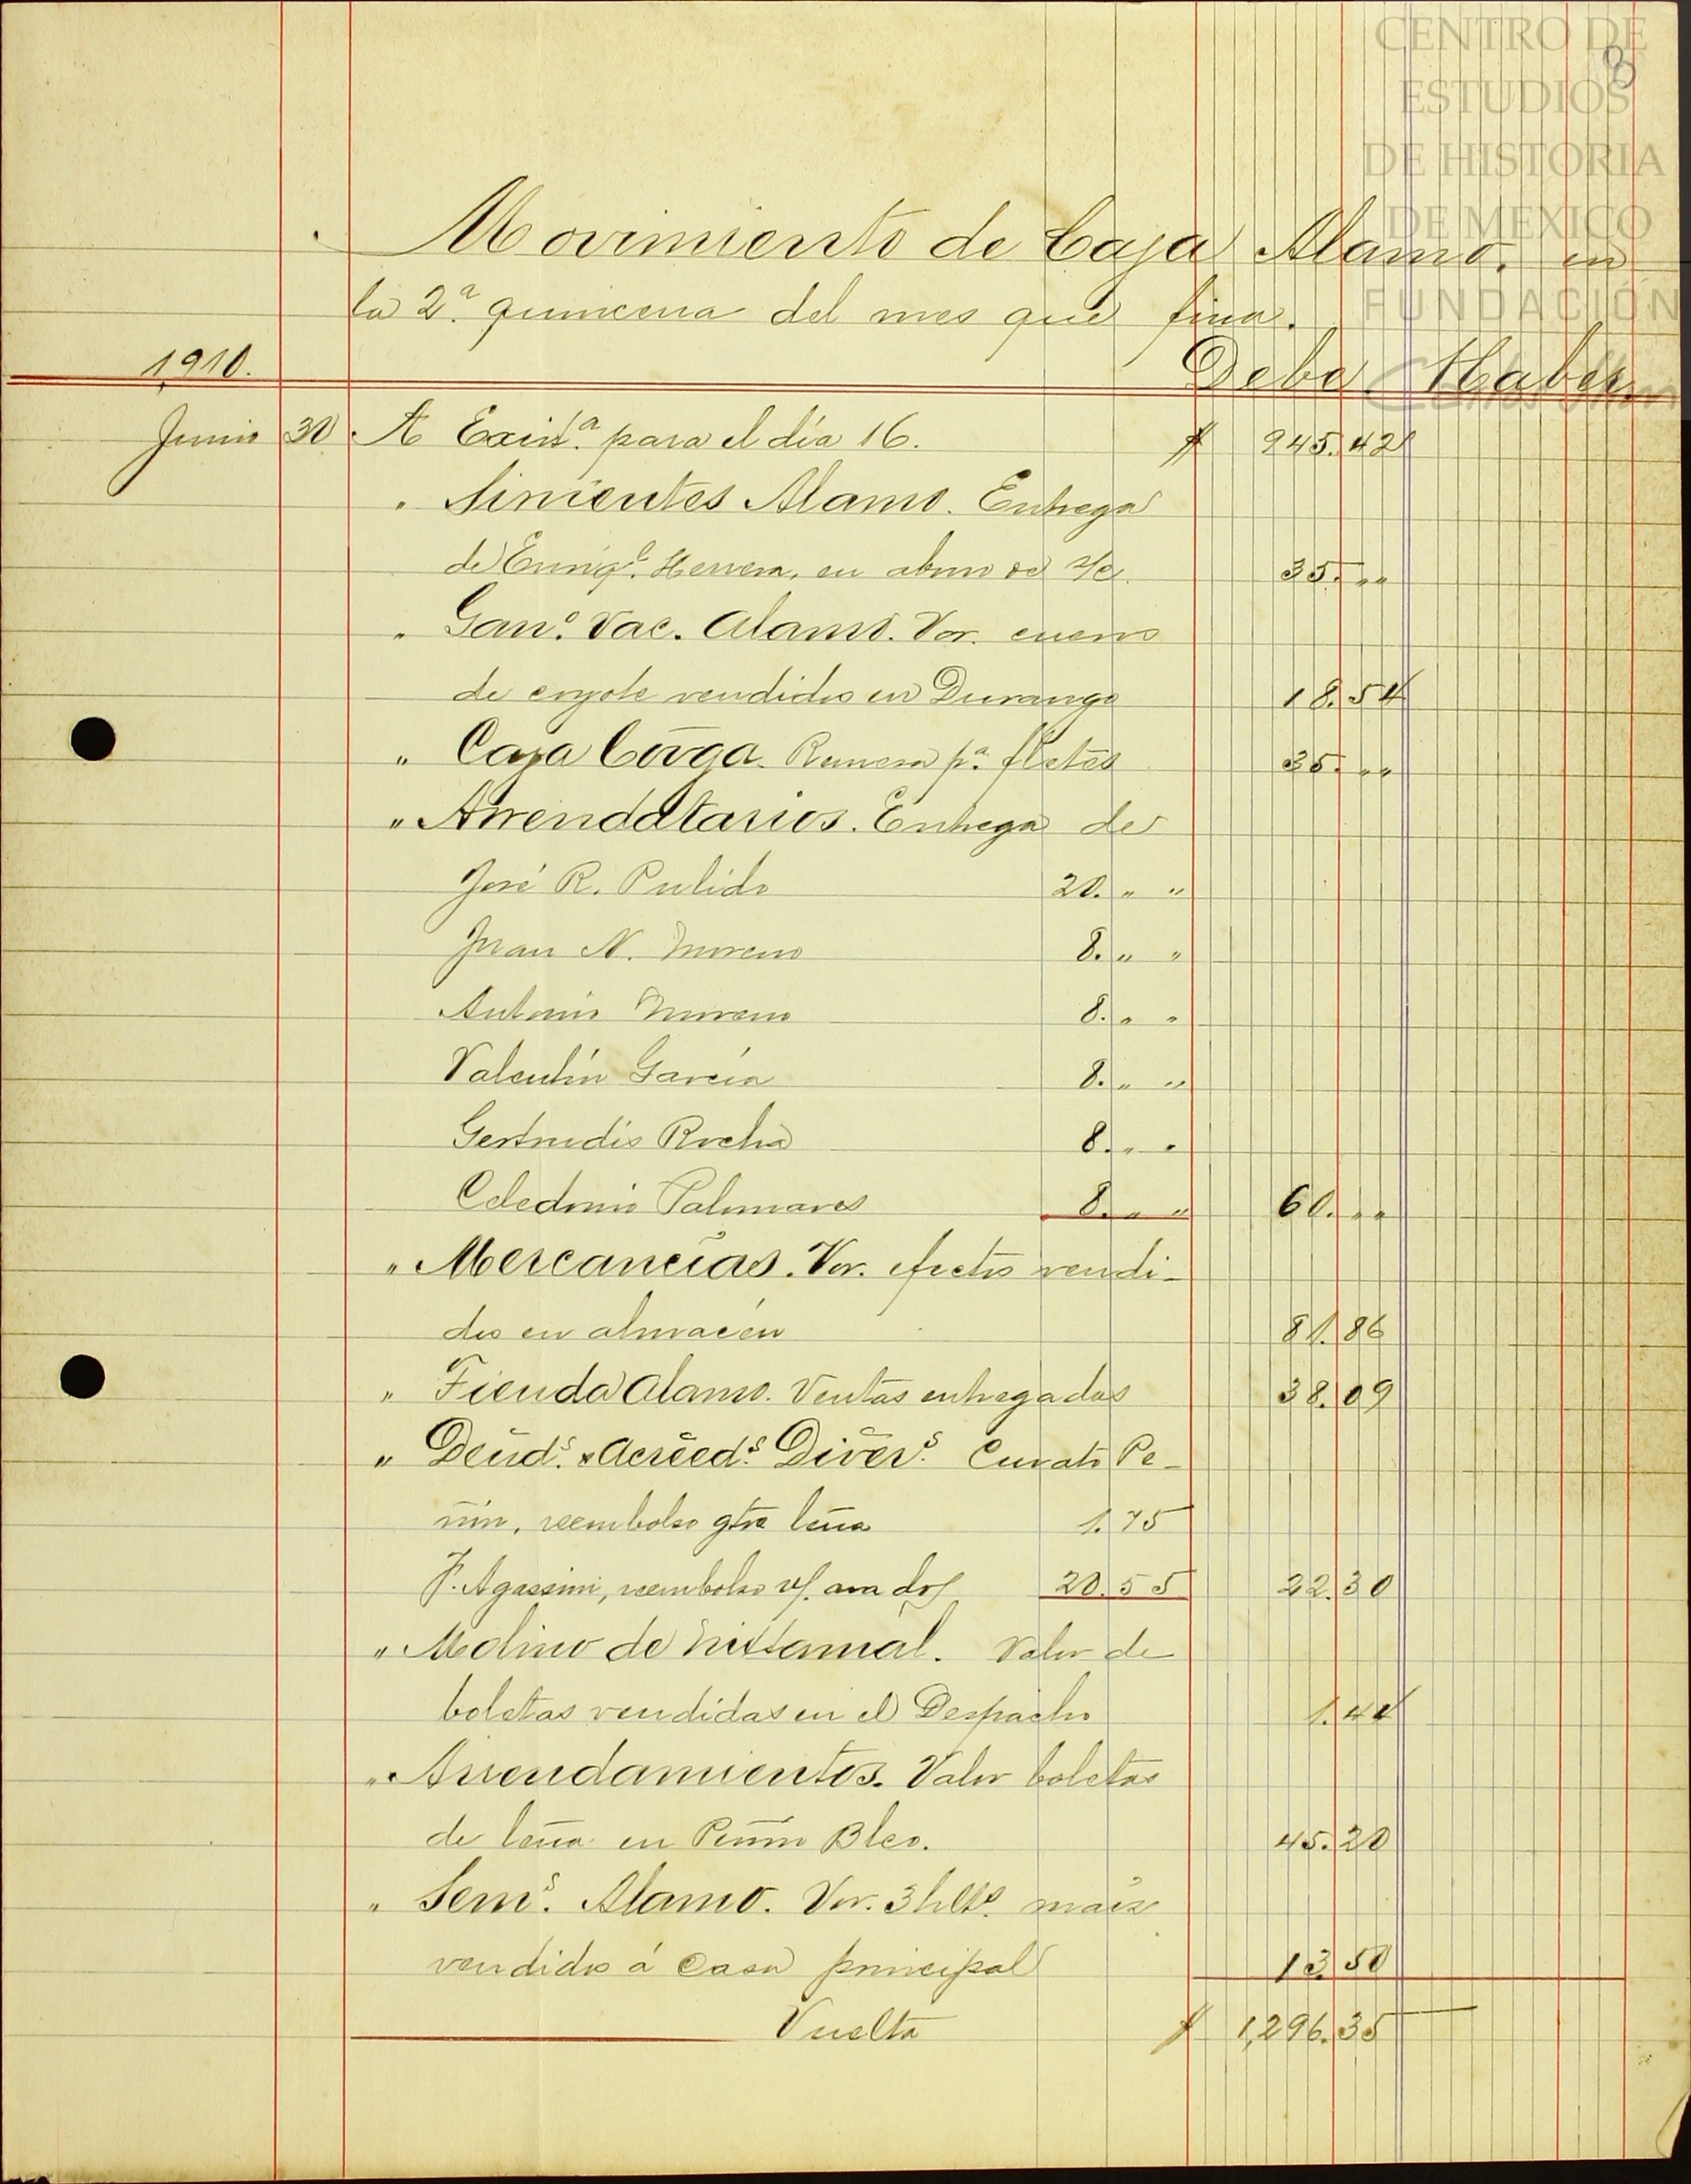 CENTRO DE
ESTUDIOS
DE HISTORIA
DE MEXICO
FUNDACIÓN
8
Movimiento de Caja Alamo. en
la 2ª quincena del mes que fina.
1910. Debe Haber
Junio 30 A Existª para el día 16. $ 945.42
" Sirvientes Alamo. Entrega
de Enriqe. Herrera, en abono de s/c. 35. " "
" Gano. Vac. Alamo. Vor. cueros
de coyote vendidos en Durango 18.54
" Caja Covga. Remesa pª fletes 35. " "
" Arrendatarios. Entrega de
José R. Pulido 20. " "
Juan N. Moreno 8. " "
Antonio Moreno 8. " "
Valentín García 8. " "
Gertrudis Rocha 8. " "
Celedonio Palomares 8. " " 60. " "
" Mercancías. Vor. efectos vendi-
dos en almacén 81.86
" Tienda Alamo. Ventas entregadas 38.09
" Deuds. & Acreeds. Divers. Curato Pe-
ñón, reembolso leña 1.75
F. Agassini, reembolso 20.55 22.30
" Molino de Nixtamal. Valor de
boletas vendidas en el Despacho 1.44
" Arrendamientos. Valor boletas
de leña en Peñón Blco. 45.20
" Sems. Alamo. Vor. 3 hlts. maíz
vendidos á Casa principal 13.50
Vuelta $ 1,296.35